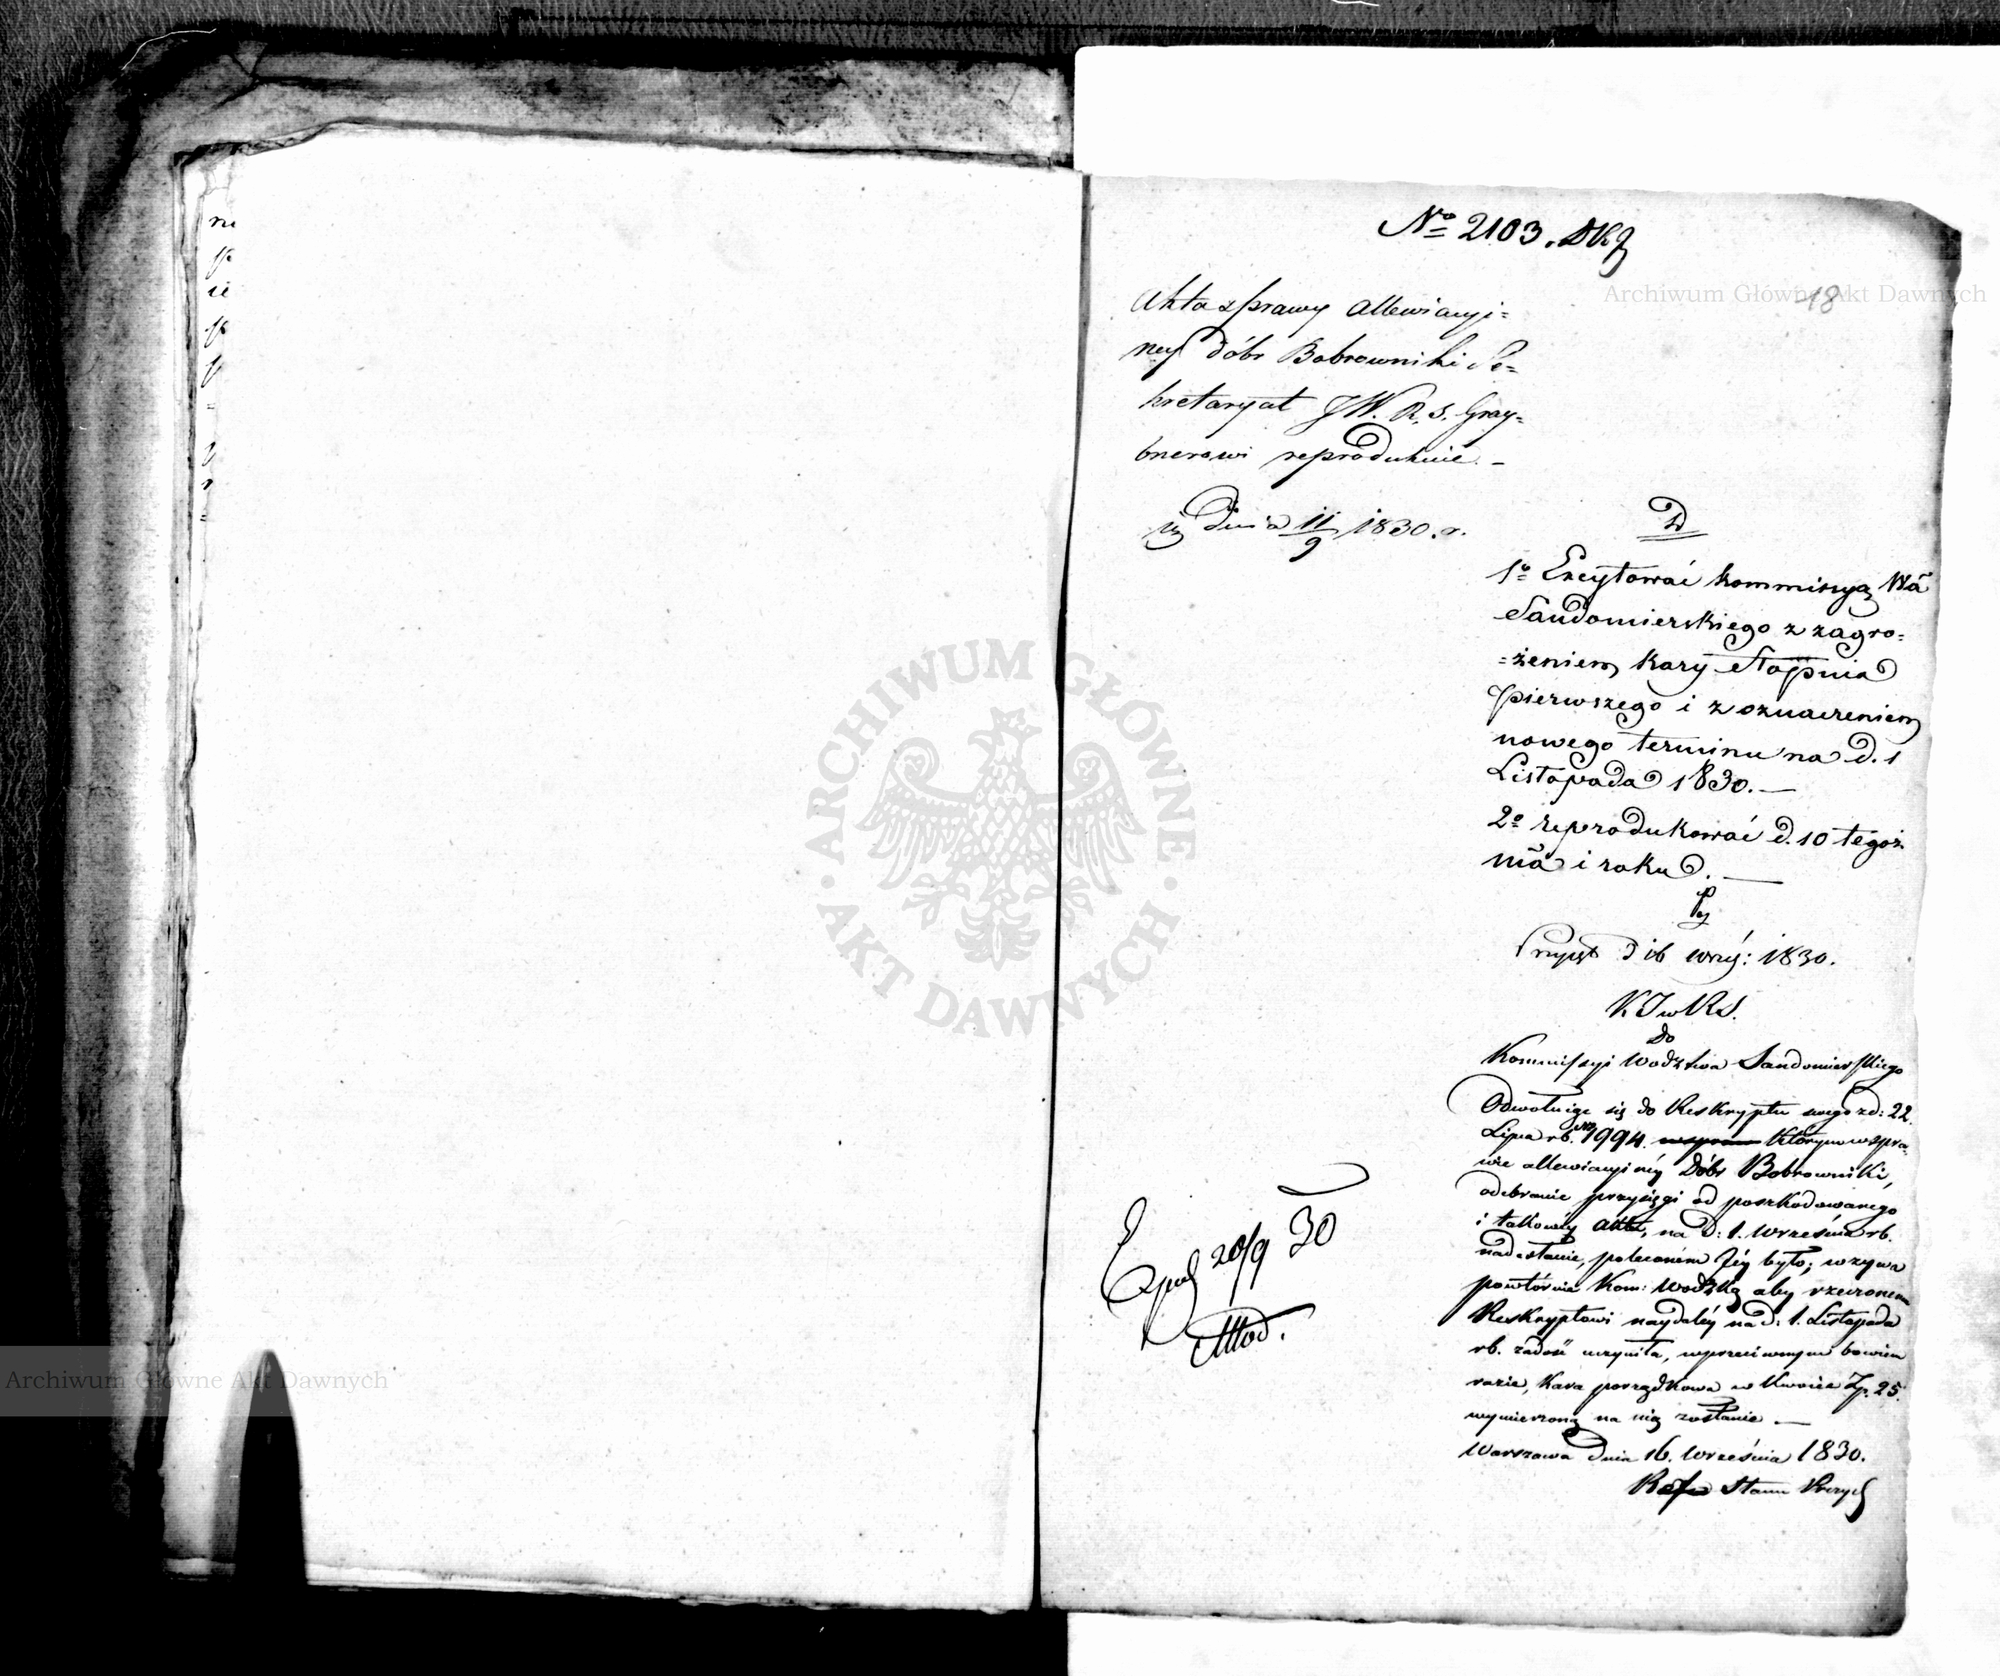 № 2103. DKJ
18
Akta z sprawy allewiacyj=
ney dóbr Bobrowniki Se=
kretaryat JW. R. S. Gray=
bnerowi reprodukuie. –
dnia 11/9 1830. r.
D
1º Excytować kommisyą Wa
Sandomierskiego z zagro=
=żeniem kary stopnia
pierwszego i z oznaczeniem
nowego terminu na d. 1
Listopada 1830. —
2º reprodukować d. 10 tegoż
ma i roku. —
Przyięto d 16 wrzś: 1830.
K J w R S.
do
Kommissyi Wodztwa Sandomierskiego
Odwołuiąc się do Reskryptu swego z d: 22.
Lipca rb. No 1994. którym w spra-
wie allewiacyinéy Dóbr Bobrowniki,
odebranie przysięgi od poszkodowanego
i takowéy Aktu, na d: 1. Września rb.
nadesłanie, poleconém Jéy było; wzywa
powtórnie Kom: Wodzką aby rzeczonemu
Reskryptowi naydaléy na d: 1. Listopada
rb. zadość uczyniła, w przeciwnym bowiem
razie, kara porządkowa w kwocie Zp. 25.
wymierzoną na nią zostanie —
Warszawa dnia 16. Września 1830.
Radca Stanu Prezyd
Exped 20/9 30
Archiwum Główne Akt Dawnych
Archiwum Główne Akt Dawnych
ARCHIWUM GŁÓWNE AKT DAWNYCH